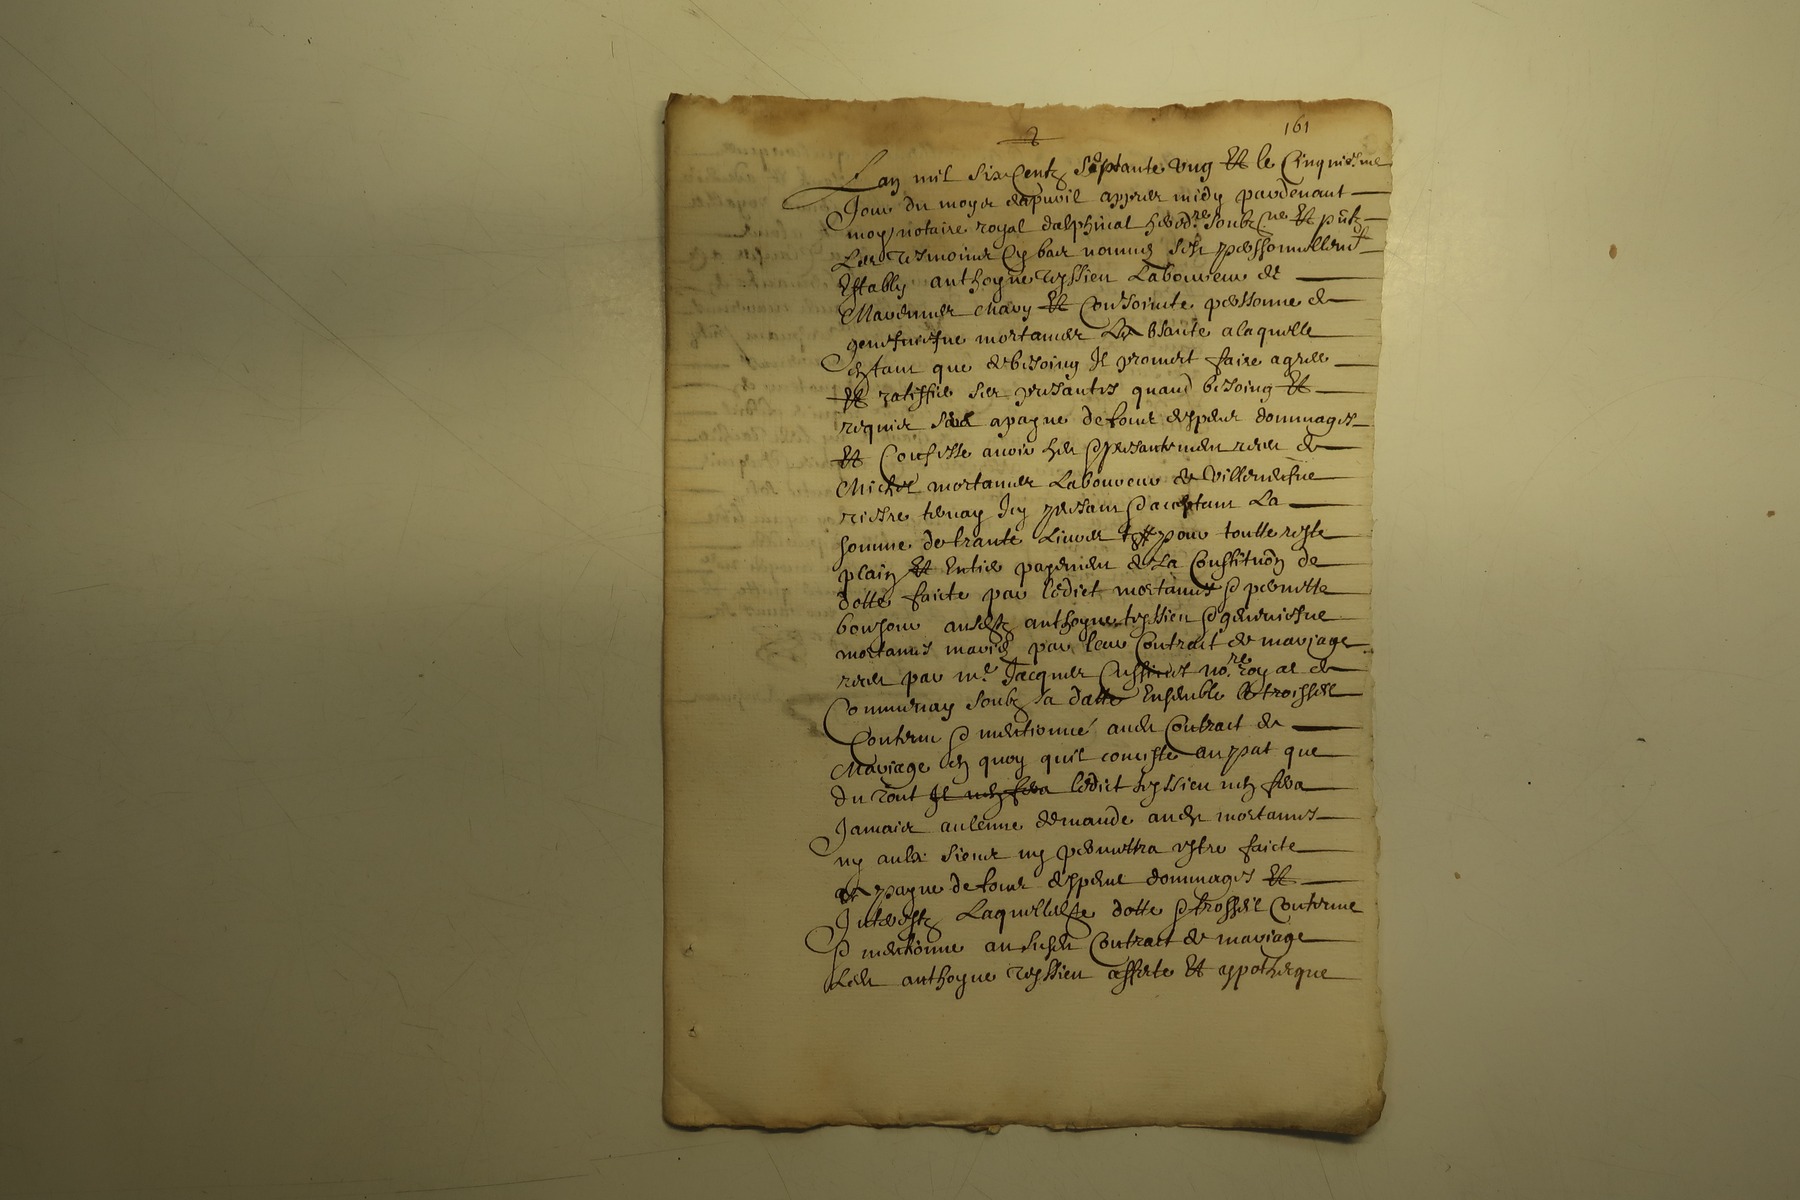 161
Lan mil six Centz Septante ung Et le Cinquiesme
Jour du moys dapvril appres midy pardevant
moy notaire royal dalphinal soubzne Et pntz
Les tesmoins Cy bas nommes sest personnellemt
Estably anthoyne tyssien Laboureur de
Marennes mary Et Conjointe personne de
genefviefve mortamer absante a laquelle
En tant que de besoing Il promet faire agreer
Et ratiffier ses presantes quand besoing Et
requis sera a payne de tous despens dommages
Et Confesse avoir heu presantemen receu de
Michel mortamer Laboureur de Villeneufve
Icy presant acceptant La
somme de trante Livres pour toutte reste
plain Et Entier payemen de La Constituon de
dotte faicte par ledict mortamer pernette
bonjour ausdtz anthoyne tyssien geneviefve
mortamer maries par leur Contract de mariage
receu par me Jacques nore royal de
Communay soubz sa datte Ensemble le trossel
Contenu mentionné aud Contract de
Mariage En quoy quil conciste au pat que
du tout Il nen fera ledict tyssien nen fera
Jamais aulcune demande aud mortamer
ny aulx siens ny permettra estre faicte
a payne de tous despens dommages Et
Interestz Laquelle dotte trossel Contenue
mentionne au susd Contract de mariage
Led anthoyne tyssien affecte Et ypotheque